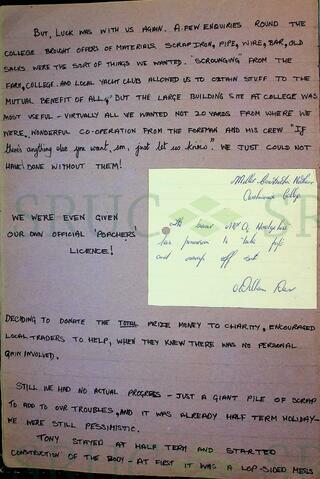 But, Luck was with us again. A few enquiries round the
college brought offers of materials. Scrap iron, pipe, wire, bar, old
sacks were the sort of things we wanted. "Scrounging" from the
farm, college. and local yacht club allowed us to obtain stuff to the
mutual benefit of all, but the large building site at college was
most useful - virtually all we wanted not 20 yards from where we
were. Wonderful co-operation from the foreman and his crew "If
there's anything else you want, son, just let us know." We just could not
have done without them!
We were even given
our own official 'poachers'
Licence!
College
The bearer
has permission to take pipe
and scrap off site
Deciding to donate the total prize money to charity, encouraged
local traders to help, when they knew there was no personal
gain involved.
Still we had no actual progress - just a giant pile of scrap
to add to our troubles, and it was already half term holiday-
we were still pessimistic.
Tony stayed at half term and started
construction of the body - at first it was a lop-sided mess